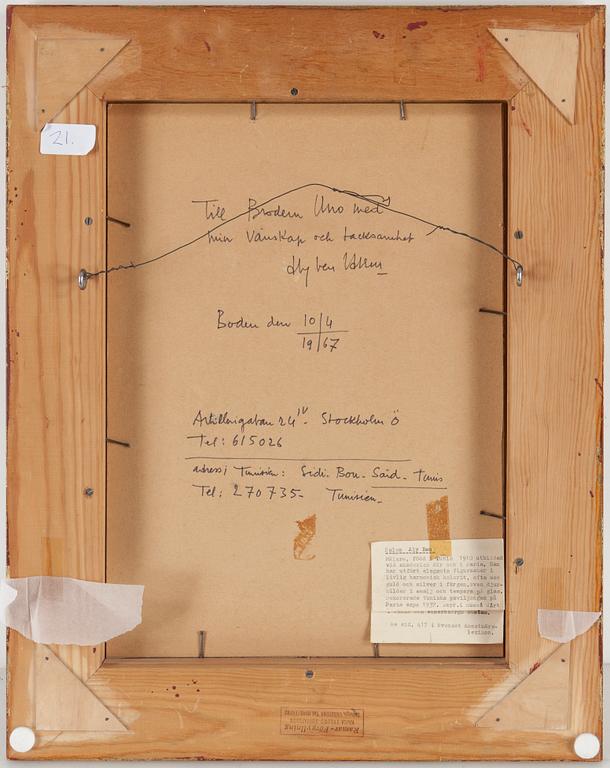 21.
Till Brodern Uno med
min Vänskap och tacksamhet
Aly ben
Boden den 10/4
19/67
Artillerigatan 24 IV - Stockholm Ö
Tel: 615026
adress i Tunisien: Sidi-Bou-Said-Tunis
Tel: 270735- Tunisien-
Salem Aly Ben
Målare, född i Tunis 1910 utbildad
vid akademien där och i Paris. Han
har utfört eleganta figursaker i
livlig harmonisk kolorit, ofta med
guld och silver i färgen, även djur-
bilder i emalj och tempera på glas.
Dekorerade Tuniska paviljongen på
Paris expo 1937. Repr. i museé d'Art
Se sid. 417 i Svenskt Konstnärs-
lexikon.
Ramar-Förgyllning